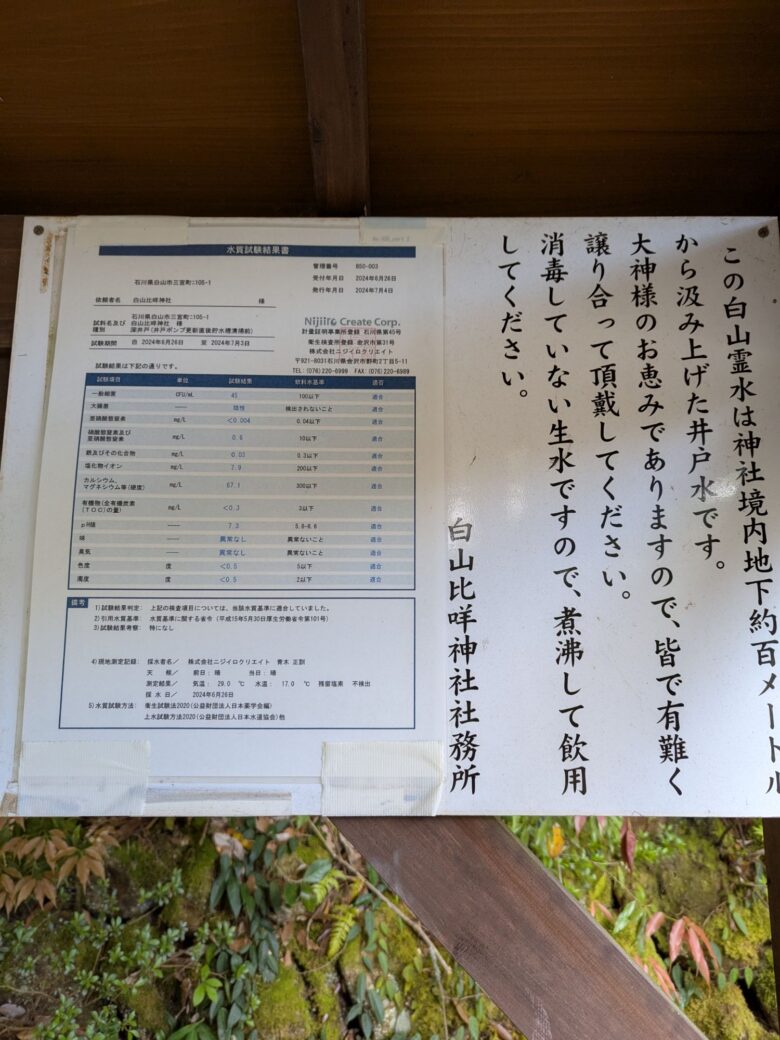 水質試験結果書
管理番号 B50-003
受付年月日 2024年6月26日
発行年月日 2024年7月4日
石川県白山市三宮町ニ105-1
依頼者名 白山比咩神社 様
石川県白山市三宮町ニ105-1
試料名及び 白山比咩神社 様
種別 深井戸(井戸ポンプ更新直後貯水槽清掃前)
試験期間 自 2024年6月26日 至 2024年7月3日
Nijiiro Create Corp.
計量証明事業所登録 石川県第45号
衛生検査所登録 金沢市第31号
株式会社ニジイロクリエイト
〒921-8031石川県金沢市野町2丁目5-11
TEL:(076)220-6999 FAX:(076)220-6989
試験結果は下記の通りです。
試験項目 単位 試験結果 飲料水基準 適否
一般細菌 CFU/mL 45 100以下 適合
大腸菌 ―― 陰性 検出されないこと 適合
亜硝酸態窒素 mg/L <0.004 0.04以下 適合
硝酸態窒素及び
亜硝酸態窒素 mg/L 0.6 10以下 適合
鉄及びその化合物 mg/L 0.03 0.3以下 適合
塩化物イオン mg/L 7.9 200以下 適合
カルシウム、
マグネシウム等(硬度) mg/L 67.1 300以下 適合
有機物(全有機炭素
(TOC)の量) mg/L <0.3 3以下 適合
pH値 ―― 7.3 5.8-8.6 適合
味 ―― 異常なし 異常ないこと 適合
臭気 ―― 異常なし 異常ないこと 適合
色度 度 <0.5 5以下 適合
濁度 度 <0.5 2以下 適合
備考
1)試験結果判定: 上記の検査項目については、当該水質基準に適合していました。
2)引用水質基準: 水質基準に関する省令(平成15年5月30日厚生労働省令第101号)
3)試験結果考察: 特になし
4)現地測定記録: 採水者名/ 株式会社ニジイロクリエイト 青木 正訓
天 候/ 前日:晴 当日:晴
測定結果/ 気温: 29.0 ℃ 水温: 17.0 ℃ 残留塩素 不検出
採水日/ 2024年6月26日
5)水質試験方法: 衛生試験法2020(公益財団法人日本薬学会編)
上水試験方法2020(公益財団法人日本水道協会)他
この白山霊水は神社境内地下約百メートル
から汲み上げた井戸水です。
大神様のお恵みでありますので、皆で有難く
譲り合って頂戴してください。
消毒していない生水ですので、煮沸して飲用
してください。
白山比咩神社社務所